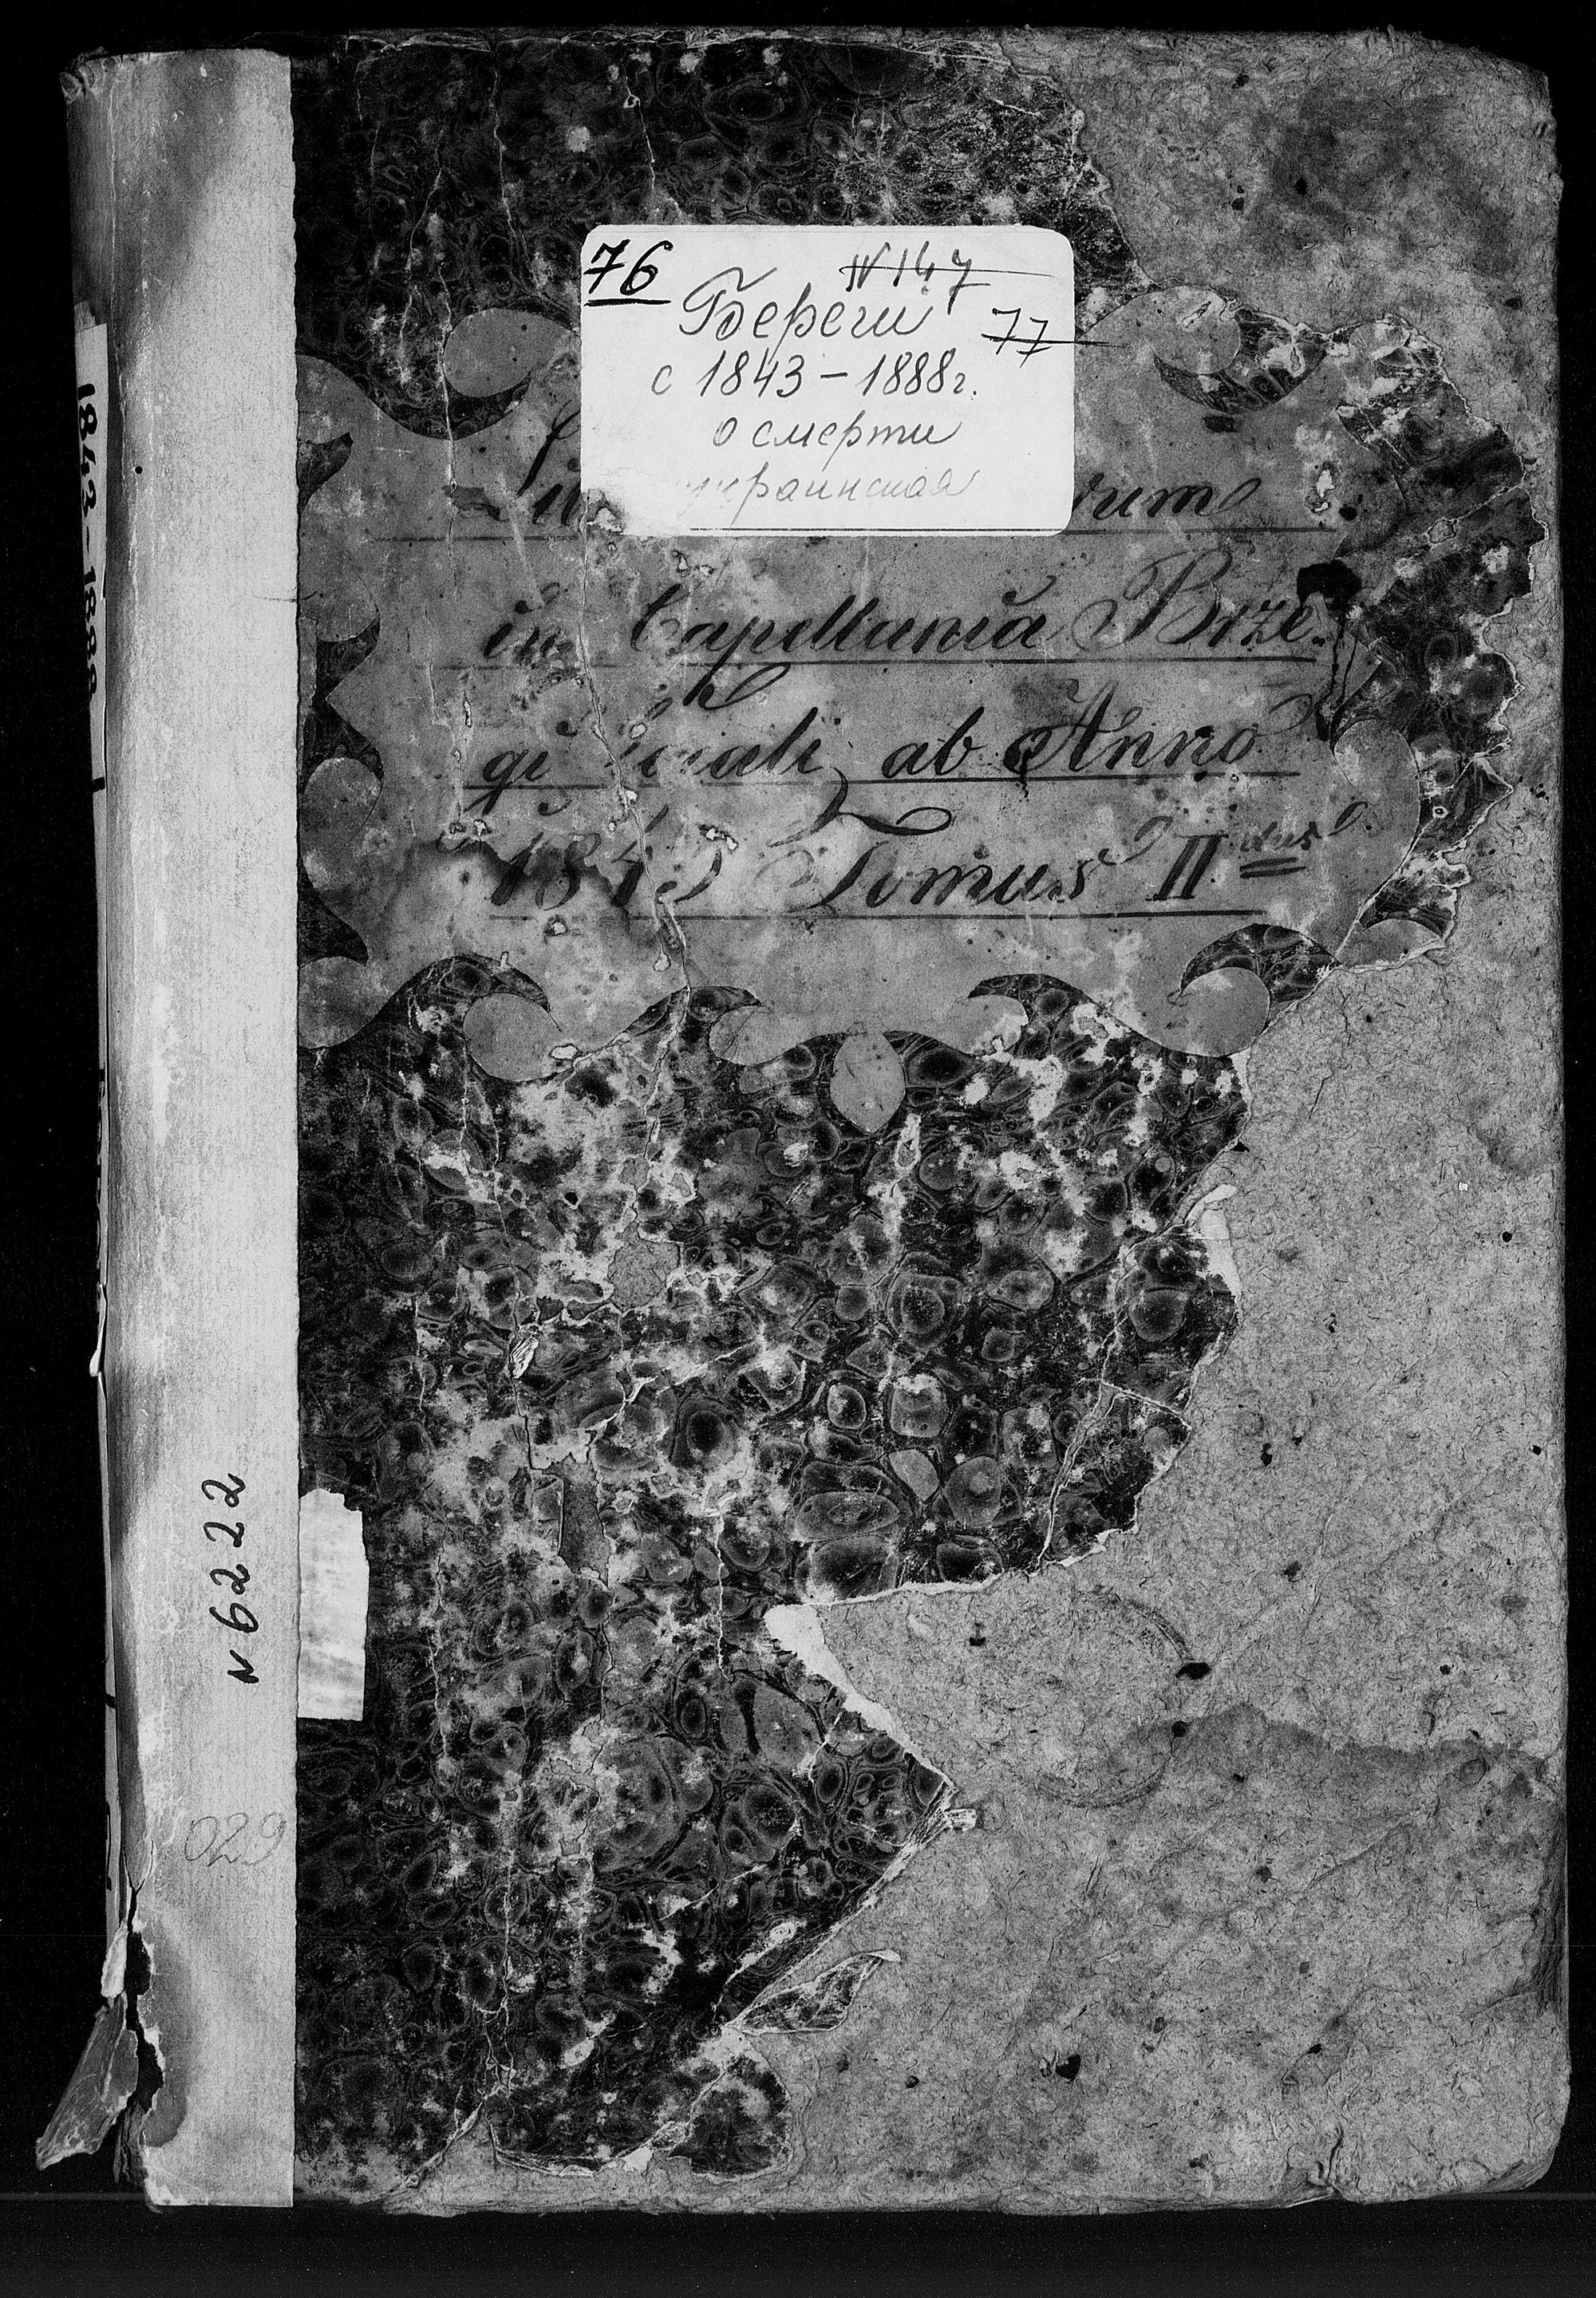 76
N 147
Береги
77
с 1843 – 1888г.
о смерти
украинская
in Capellania Brze-
gi locali ab Anno
1843 Tomus II dus
1843-1888
N 6222
029